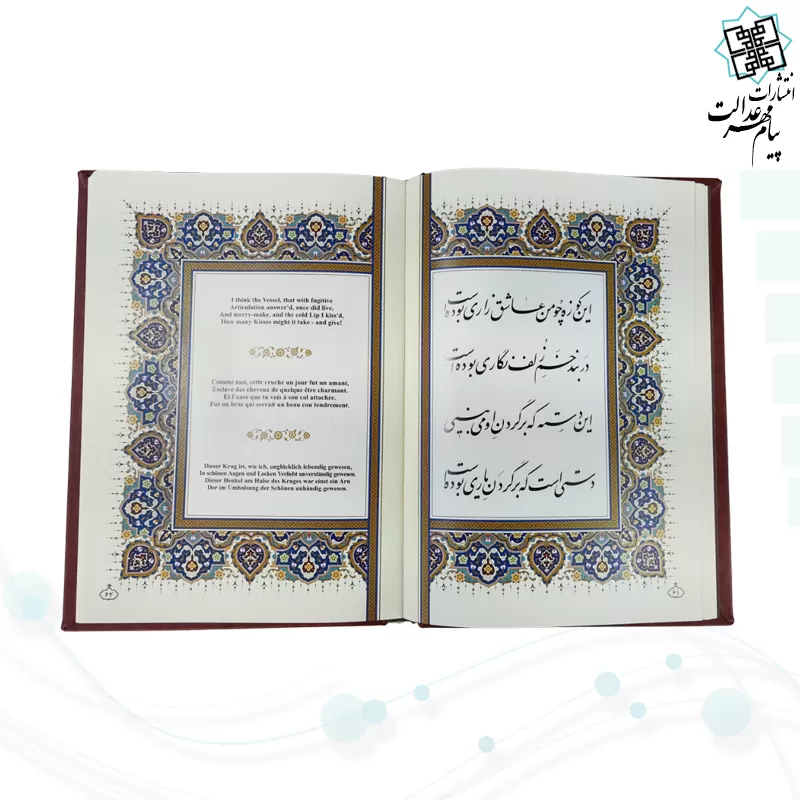 انتشارات
پیام مهر عدالت
I think the Vessel, that with fugitive
Articulation answer'd, once did live,
And merry-make, and the cold Lip I kiss'd,
How many Kisses might it take - and give!
Comme moi, cette cruche un jour fut un amant,
Esclave des cheveux de quelque être charmant.
Et l'anse que tu vois à son col attachée,
Fut un bras qui serrait un beau cou tendrement.
Dieser Krug ist, wie ich, unglücklich lebendig gewesen,
In schönen Augen und Locken Verliebt unverständig gewesen.
Dieser Henkel am Halse des Kruges war einst ein Arn
Der im Umhalsung der Schönen unhändig gewesen.
۶۲
این کوزه چو من عاشق زاری بوده است
در بند خم زلف نگاری بوده است
این دسته که بر گردن او می بینی
دستی است که بر گردن یاری بوده است
۶۱